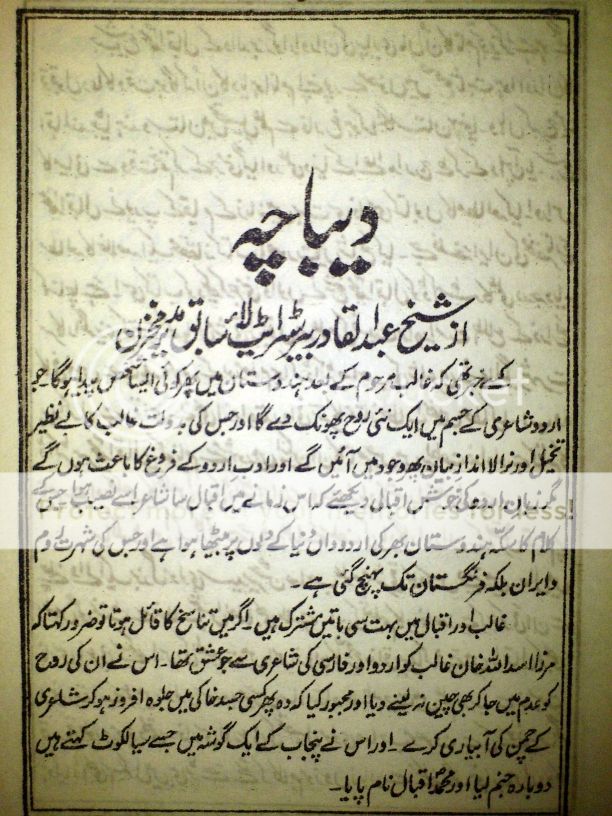 دیباچہ
از شیخ عبدالقادر بیرسٹر ایٹ لاء سابق مدیر مخزن
کسے خبر تھی کہ غالب مرحوم کے بعد ہندوستان میں پھر کوئی ایسا شخص پیدا ہوگا جو
اردو شاعری کے جسم میں ایک نئی روح پھونک دے گا اور جس کی بدولت غالب کا بے نظیر
تخیل اور نرالا انداز بیان پھر وجود میں آئیں گے اور ادب اردو کے فروغ کا باعث ہوں گے
مگر زبان اردو کی خوش اقبالی دیکھئے کہ اس زمانے میں اقبال سا شاعر اسے نصیب ہوا جس کے
کلام کا سکہ ہندوستان بھر کی اردو داں دنیا کے دلوں پر بیٹھا ہوا ہے اور جس کی شہرت روم
و ایران بلکہ فرنگستان تک پہنچ گئی ہے۔
غالب اور اقبال میں بہت سی باتیں مشترک ہیں۔ اگر میں تناسخ کا قائل ہوتا تو ضرور کہتا کہ
مرزا اسد اللہ خان غالب کو اردو اور فارسی کی شاعری سے جو عشق تھا۔ اس نے ان کی روح
کو عدم میں جا کر بھی چین نہ لینے دیا اور مجبور کیا کہ وہ پھر کسی جسد خاکی میں جلوہ افروز ہو کر شاعری
کے چمن کی آبیاری کرے۔ اور اس نے پنجاب کے ایک گوشہ میں جسے سیالکوٹ کہتے ہیں
دوبارہ جنم لیا اور محمد اقبال نام پایا۔